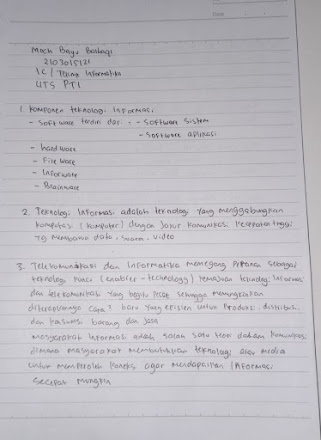 Moch Bayu
2103015121
1C / Teknik Informatika
UTS PTI
1. Komponen teknologi Informasi
- Software terdiri dari : - Software Sistem
- Software aplikasi
- hardware
- Fireware
- Inforware
- Brainware
2. Teknologi Informasi adalah teknologi yang menggabungkan
komputasi (komputer) dengan Jalur komunikasi kecepatan tinggi
yg membawa data, suara, video
3. Telekomunikasi dan Informatika memegang Peranan sebagai
teknologi kunci (enabler-technology) kemajuan teknologi Informasi
dan telekomunikasi yang begitu Pesat sehingga memungkinkan
diterapkannya cara² baru yang efisien untuk Produksi, distribusi,
dan konsumsi barang dan Jasa
masyarakat Informasi adalah salah satu dalam komunikasi
dimana masyarakat membutuhkan teknologi atau media
untuk memperoleh agar mendapatkan Informasi
Secepat mungkin